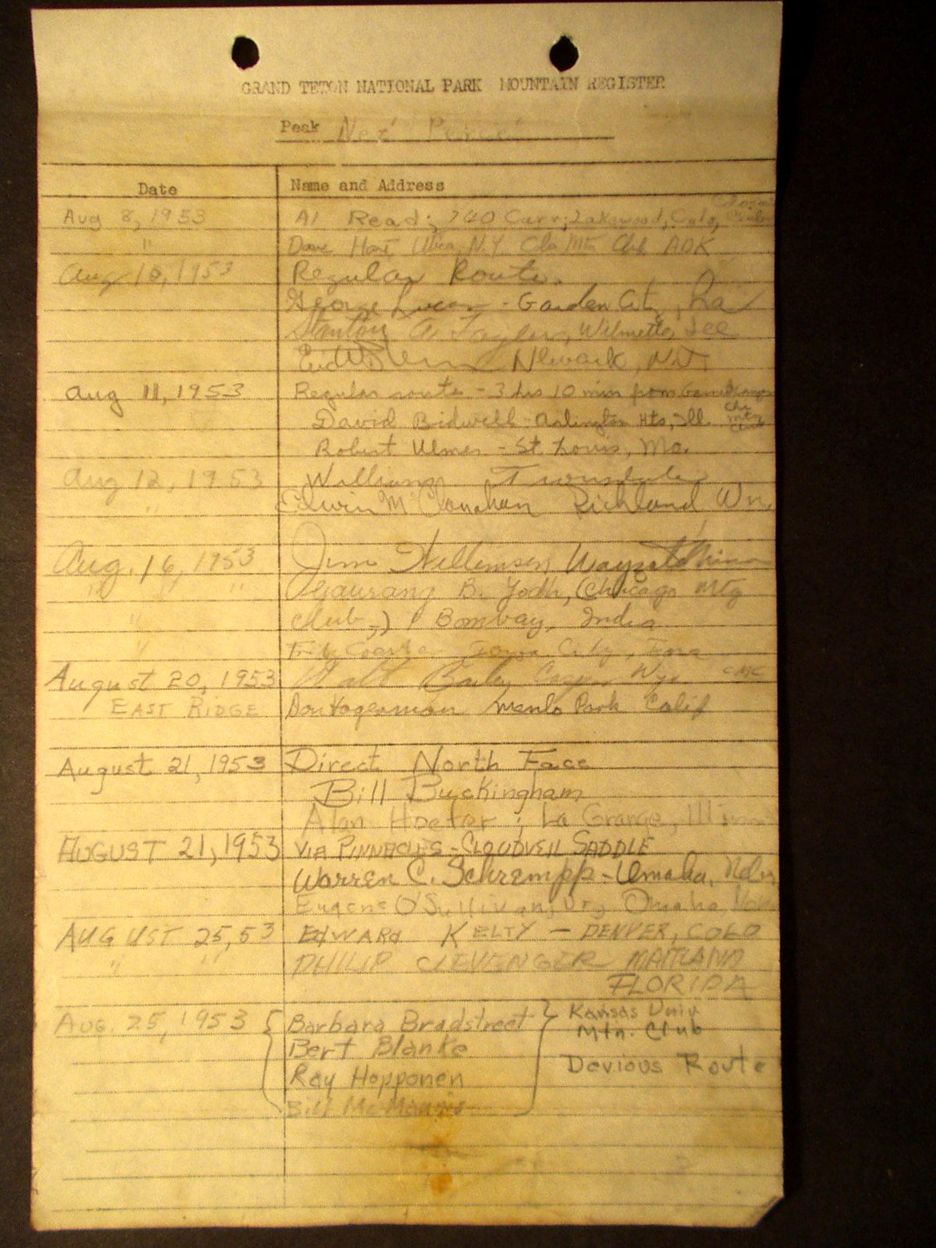 GRAND TETON NATIONAL PARK MOUNTAIN REGISTER
Peak Nez Perce
Date Name and Address
Aug 8, 1953 Al Read; 740 Carr; Lakewood, Colo,
" Dave Hart Utica, N.Y. Mtn Club ADK
Aug 10, 1953 Regular Route.
George - Garden City,
Stanton A Taylor, Wilmette,
Newark,
Aug 11, 1953 Regular route - 3 hrs 10 min from
David Bidwell - Arlington Hts, Ill. Chi Mtg Club
Robert Ulmer - St. Louis, Mo.
Aug 12, 1953 William
" Edwin McClanahan Richland Wn.
Aug. 16, 1953 Jim Willemsen Wayzata Minn
" " " Gaurang B. Yodh, (Chicago Mtg
" Club,) Bombay, India
Iowa City, Iowa
August 20, 1953 Walt Bailey Casper Wyo CMC
EAST RIDGE Don Hagerman Menlo Park Calif
August 21, 1953 Direct North Face
Bill Buckingham
Alan ; La Grange,
AUGUST 21, 1953 VIA PINNACLES - CLOUDVEIL SADDLE
Warren C. Schrempp - Omaha, Nebr
Eugene O'Sullivan, Jr, Omaha, Nebr
AUGUST 25, 53 EDWARD KELTY - DENVER, COLO
" " PHILIP CLEVENGER MAITLAND
FLORIDA
Aug. 25, 1953 { Barbara Bradstreet } Kansas Univ
Mtn. Club
Bert Blanke
Devious Route
Ray Hopponen
Bill McMannis